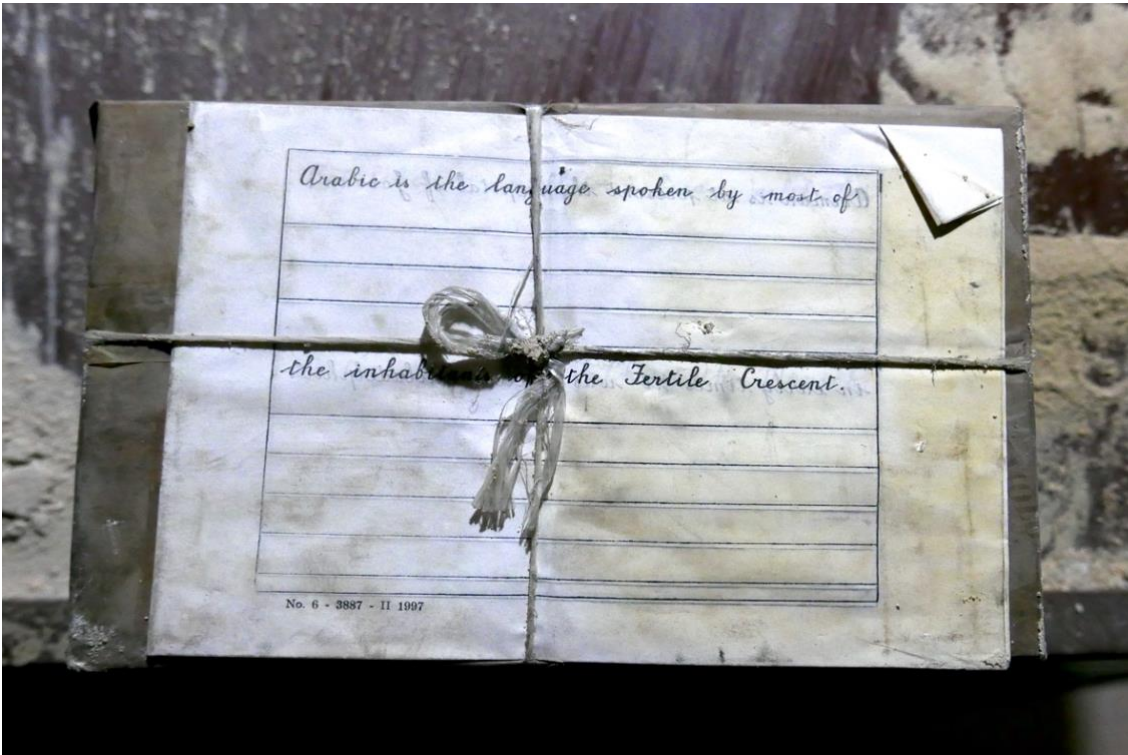 Arabic is the language spoken by most of
the inhabitants of the Fertile Crescent.
No. 6 - 3887 - II 1997